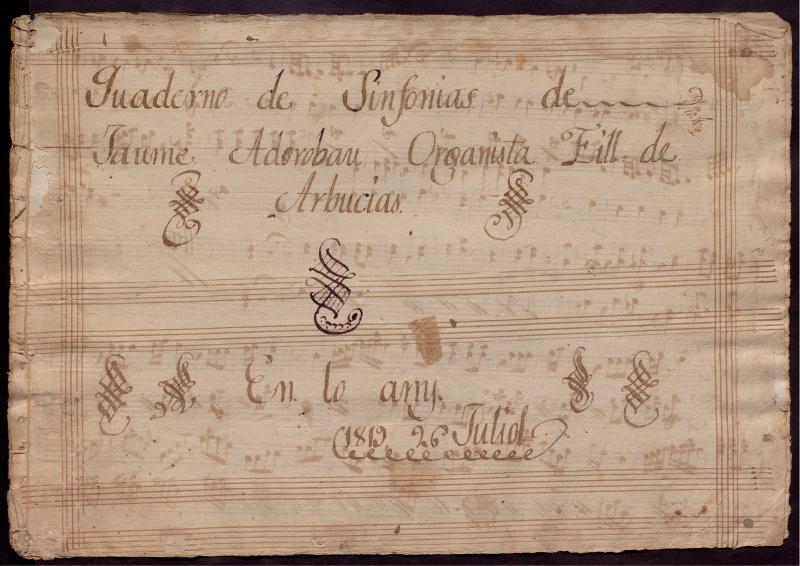 Quaderno de Sinfonias de
Jaume Adorobau Organista Fill de
Arbucias.
En lo any.
1819 26 Juliol